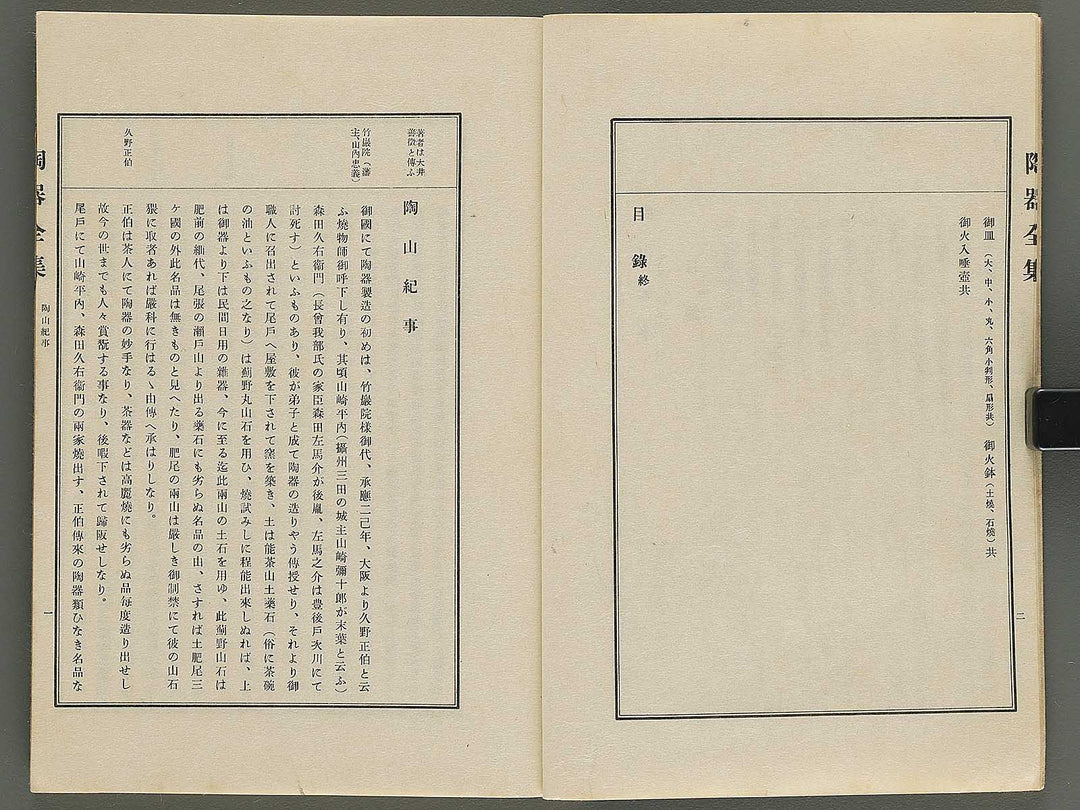 陶器全集
御皿（大、中、小、丸、六角小判形、扇形共）　御火鉢（土燒、石燒）共
御火入唾壺共
目錄終
二
著者は大井
善徴と傳ふ
陶山紀事
竹巖院（藩
主、山內忠義）
御國にて陶器製造の初めは、竹巖院樣御代、承應二己年、大阪より久野正伯と云
ふ燒物師御呼下し有り、其頃山崎平內（攝州三田の城主山崎彌十郎が末葉と云ふ）
森田久右衞門（長曾我部氏の家臣森田左馬介が後胤、左馬之介は豊後戶次川にて
討死す）といふものあり、彼が弟子と成て陶器の造りやう傳授せり、それより御
職人に召出されて尾戶へ屋敷を下されて窯を築き、土は能茶山土藥石（俗に茶碗
の油といふもの之なり）は薊野丸山石を用ひ、燒試みしに程能出來しぬれば、上
は御器より下は民間日用の雜器、今に至る迄此兩山の土石を用ゆ、此薊野山石は
肥前の紬代、尾張の瀨戶山より出る藥石にも劣らぬ名品の由、さすれば土肥尾三
ケ國の外此名品は無きものと見へたり、肥尾の兩山は嚴しき御制禁にて彼の山石
猥に取者あれば嚴科に行はるゝ由傳へ承はりしなり。
久野正伯
正伯は茶人にて陶器の妙手なり、茶器などは高麗燒にも劣らぬ品每度造り出せし
故今の世までも人々賞翫する事なり、後暇下されて歸阪せしなり。
尾戶にて山崎平內、森田久右衞門の兩家燒出す、正伯傳來の陶器類ひなき名品な
陶器全集
陶山紀事
一